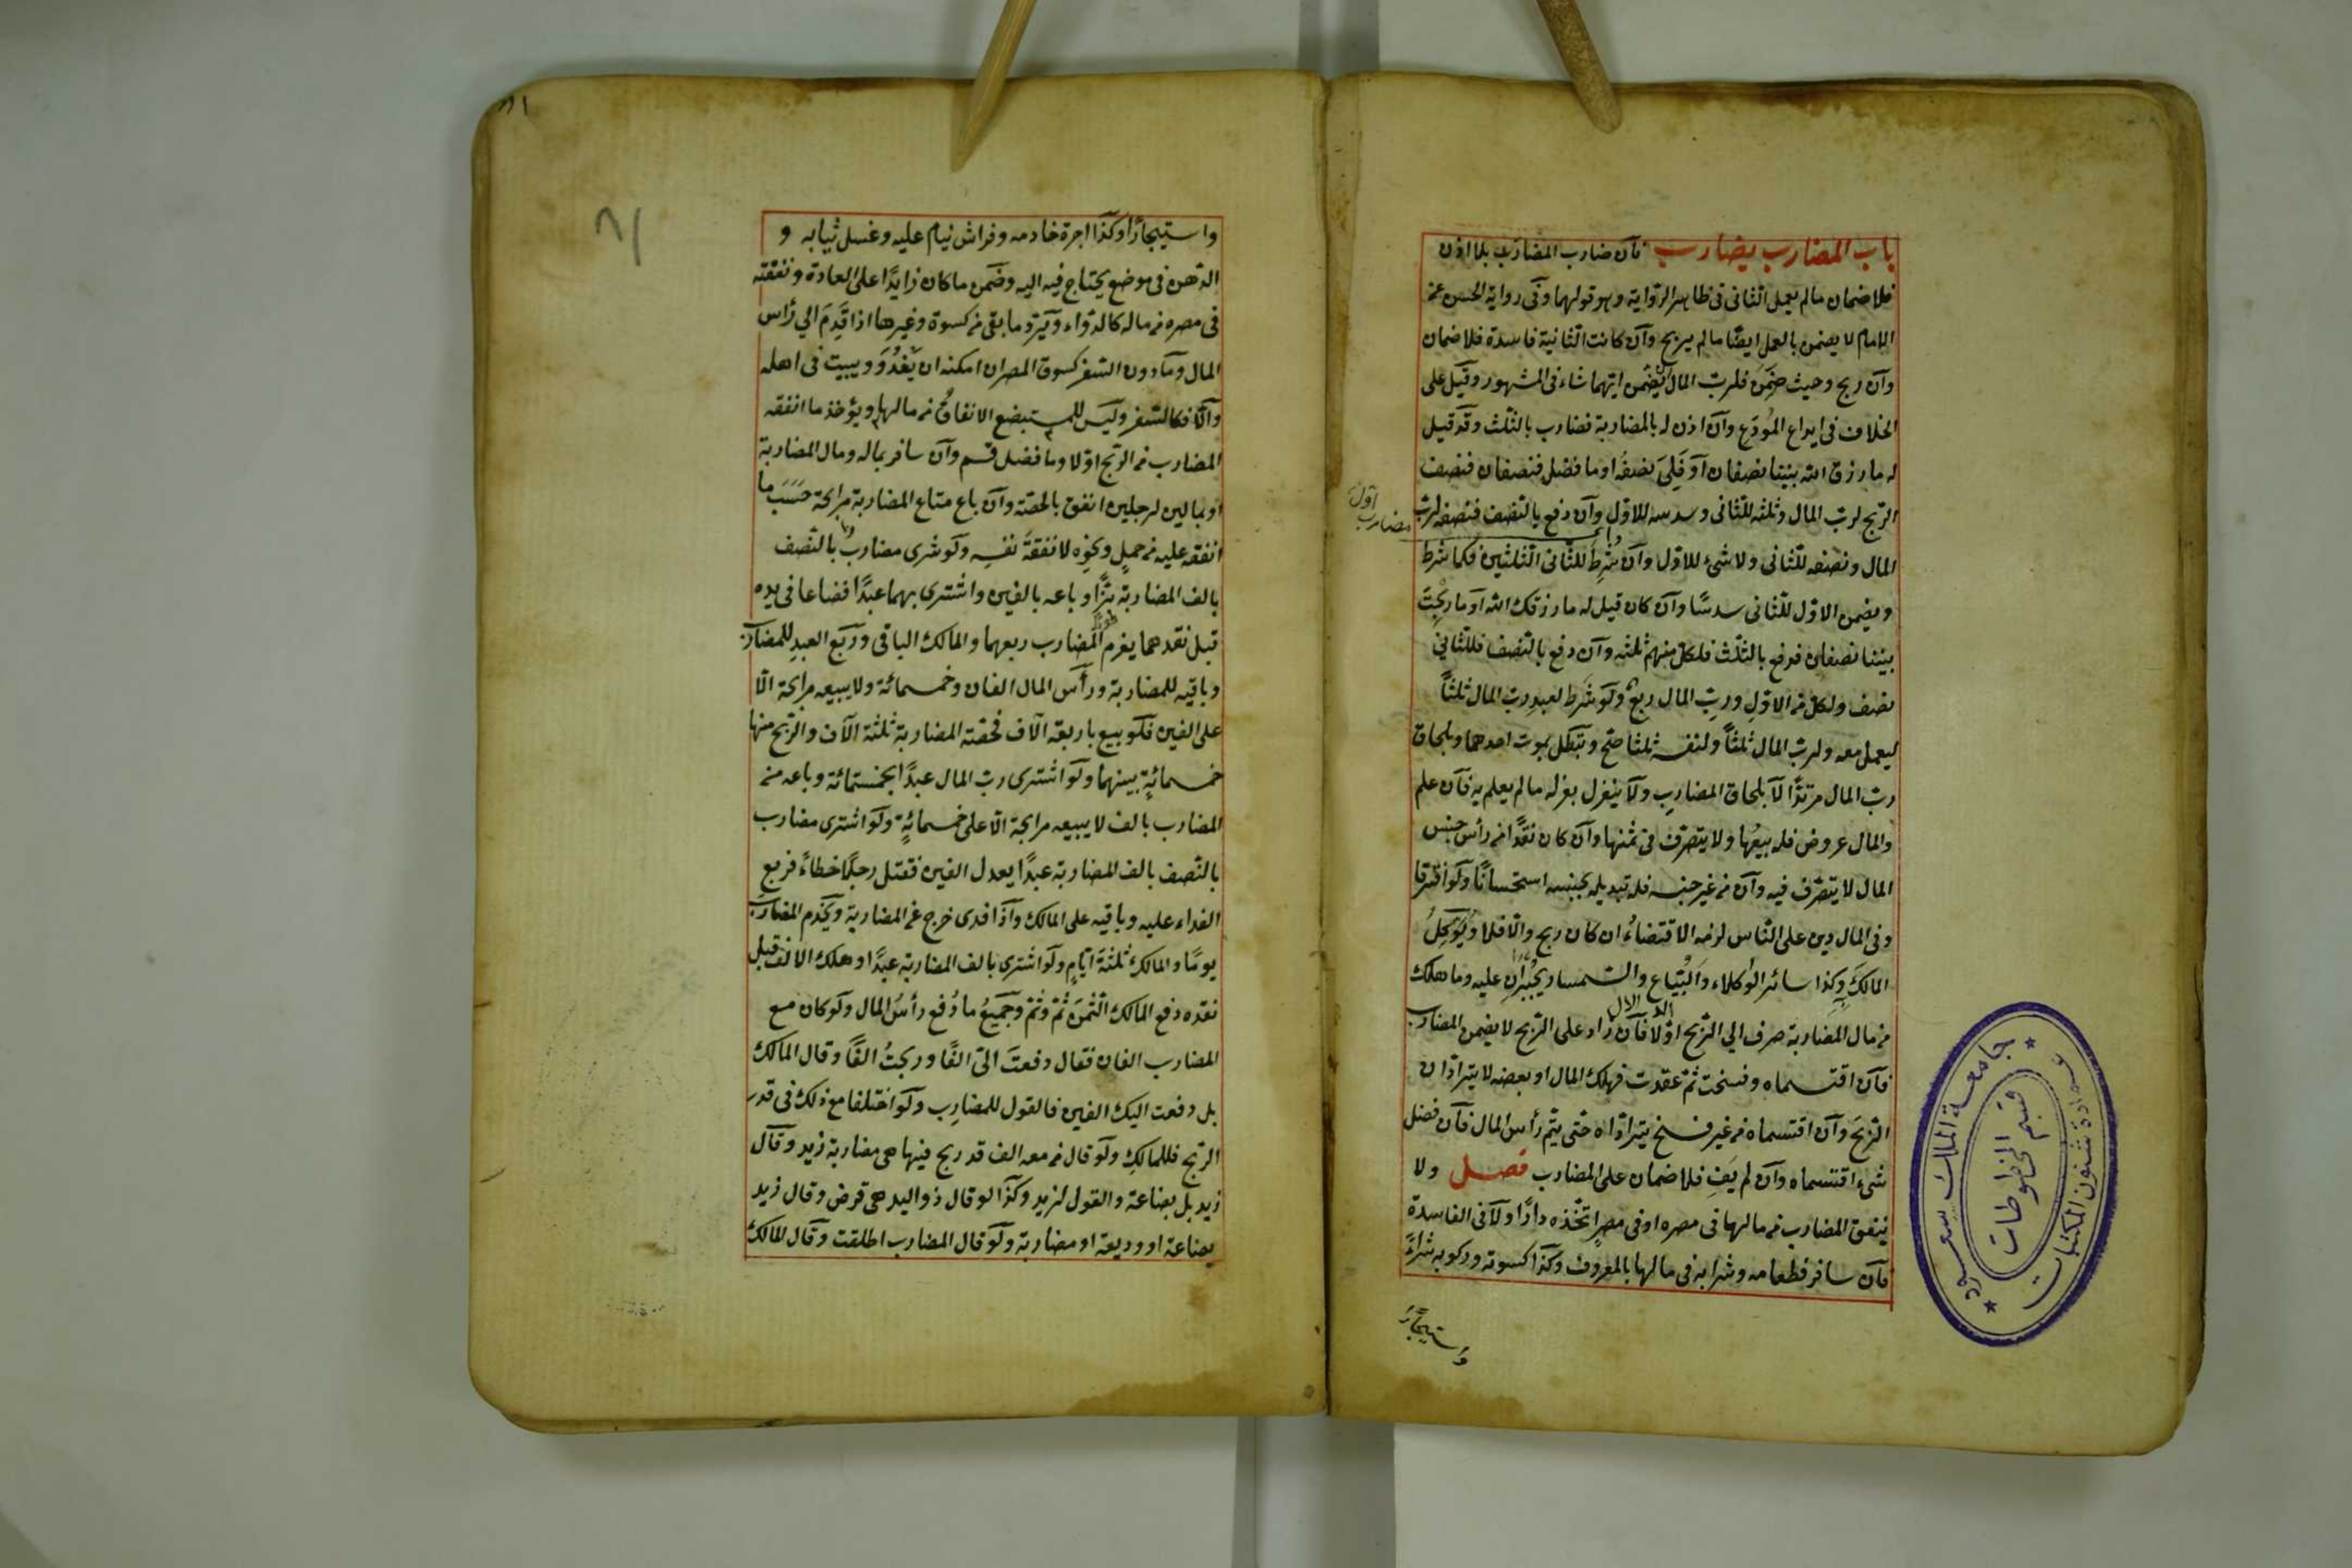 باب المضارب يضارب فان ضارب المضارب بلا اذن
فلا ضمان مالم يعمل الثانى فى ظاهر الرواية وهو قولهما وفى رواية الحسن عن
الامام لا يضمن بالعمل ايضا مالم يربح وان كانت الثانية فاسدة فلا ضمان
وان ربح وحيث ضمن فلرب المال ان يضمن ايهما شاء فى المشهور وقيل على
الخلاف فى ايداع المودع وان اذن له بالمضاربة فضارب بالثلث وقد قيل
له ما رزق الله بيننا نصفان او فلى نصفه او ما فضل فنصفان فنصف
الربح لرب المال وثلثه للثانى وسدسه للاول وان دفع بالنصف فنصفه لرب
المال ونصفه للثانى ولا شىء للاول وان شرط للثانى الثلثين فكما شرط
ويضمن الاول للثانى سدسا وان كان قيل له ما رزقك الله او ما ربحت
بيننا نصفان فدفع بالثلث فلكل منهم ثلثه وان دفع بالنصف فللثانى
نصف ولكل من الاول ورب المال ربع ولو شرط لعبد رب المال ثلثا
ليعمل معه ولرب المال ثلثا ولنفسه ثلثا صح وتبطل بموت احدهما وبلحاق
رب المال مرتدا لا بلحاق المضارب ولا ينعزل بعزله مالم يعلم به فان علم
والمال عروض فله بيعها ولا يتصرف فى ثمنها وان كان نقدا من رأس جنس
المال لا يتصرف فيه وان من غير جنسه فله تبديله بجنسه استحسانا ولو افترقا
وفى المال دين على الناس لزمه الاقتضاء ان كان ربح والا فلا ويوكل
المالك وكذا سائر الوكلاء والبياع والسمسار يجبران عليه وما هلك
من مال المضاربة صرف الى الربح اولا فان زاد على الربح لا يضمن المضارب
فان اقتسماه وفسخت ثم عقدت فهلك المال او بعضه لا يترادان
الربح وان اقتسماه من غير فسخ يترادّاه حتى يتم رأس المال فان فضل
شىء اقتسماه وان لم يف فلا ضمان على المضارب فصل ولا
ينفق المضارب من مالها فى مصره او فى مصر اتخذه دارا ولا فى الفاسدة
فان سافر فطعامه وشرابه فى مالها بالمعروف وكذا كسوته وركوبه شراء
واستيجار
اول
مضارب
جامعة الملك سعود
عمادة شئون المكتبات
قسم المخطوطات
٨١
واستيجارا وكذا اجرة خادمه وفراش ينام عليه وغسل ثيابه و
الدهن فى موضع يحتاج فيه اليه وضمن ما كان زايدا على العادة ونفقته
فى مصره من ماله كالدواء ويرد ما بقى من كسوة وغيرها اذا قدم الى رأس
المال وما دون السفر كسوق المصر ان امكنه ان يغدو ويبيت فى اهله
والا فكالسفر وليس للمستبضع الانفاق من مالها ويؤخذ ما انفقه
المضارب من الربح اولا وما فضل قسم وان سافر بماله ومال المضاربة
او بمالين لرجلين انفق بالحصة وان باع متاع المضاربة مرابحة حسب ما
انفقه عليه من حمل ونحوه لا نفقة نفسه ولو شرى مضارب بالنصف
بالف المضاربة بزا وباعه بالفين واشترى بهما عبدا فضاعا فى يده
قبل نقدهما يغرم المضارب ربعهما والمالك الباقى وربع العبد للمضارب
وباقيه للمضاربة ورأس المال الفان وخمسمائة ولا يبيعه مرابحة الا
على الفين فلو بيع باربعة آلاف فحصة المضاربة ثلثة آلاف والربح منها
خمسمائة بينهما ولو اشترى رب المال عبدا بخمسمائة وباعه من
المضارب بالف لا يبيعه مرابحة الا على خمسمائة ولو اشترى مضارب
بالنصف بالف المضاربة عبدا يعدل الفين فقتل رجلا خطاء فربع
الفداء عليه وباقيه على المالك واذا فدى خرج عن المضاربة ويخدم المضارب
يوما والمالك ثلثة ايام ولو اشترى بالف المضاربة عبدا وهلك الالف قبل
نقده دفع المالك الثمن ثم وثم وجميع ما دفع رأس المال ولو كان مع
المضارب الفان فقال دفعت الى الفا وربحت الفا وقال المالك
بل دفعت اليك الفين فالقول للمضارب ولو اختلفا مع ذلك فى قدر
الربح فللمالك ولو قال من معه الف قد ربح فيها هى مضاربة زيد وقال
زيد بل بضاعة والقول لزيد وكذا لو قال ذو اليد هى قرض وقال زيد
بضاعة او وديعة او مضاربة ولو قال المضارب اطلقت وقال المالك